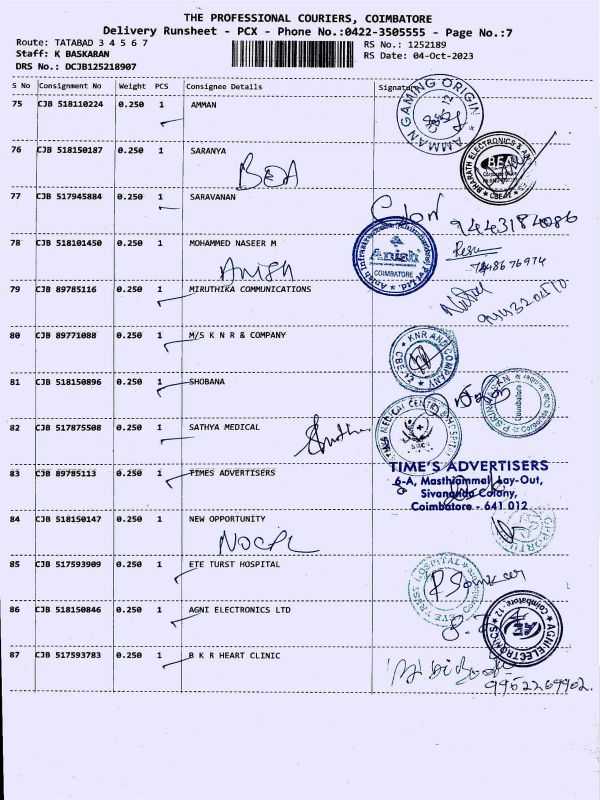 THE PROFESSIONAL COURIERS, COIMBATORE
Delivery Runsheet - PCX - Phone No.:0422-3505555 - Page No.:7
Route: TATABAD 3 4 5 6 7 RS No.: 1252189
Staff: K BASKARAN RS Date: 04-Oct-2023
DRS No.: DCJB125218907
S No Consignment No Weight PCS Consignee Details Signature
75 CJB 518110224 0.250 1 AMMAN
AMMAN GAMING ORIGIN
76 CJB 518150187 0.250 1 SARANYA
BEA
BHARATH ELECTRONICS &
BEA
77 CJB 517945884 0.250 1 SARAVANAN
9443184086
78 CJB 518101450 0.250 1 MOHAMMED NASEER M
ANISH
Anish
COIMBATORE
79 CJB 89785116 0.250 1 MIRUTHIKA COMMUNICATIONS
80 CJB 89771088 0.250 1 M/S K N R & COMPANY
KNR AND COMPANY
81 CJB 518150896 0.250 1 SHOBANA
82 CJB 517875508 0.250 1 SATHYA MEDICAL
MEDICAL CENTRE
83 CJB 89785113 0.250 1 TIMES ADVERTISERS
TIME'S ADVERTISERS
6-A, Masthiammal Lay-Out,
Sivananda Colony,
Coimbatore - 641 012
84 CJB 518150147 0.250 1 NEW OPPORTUNITY
NOCPL
85 CJB 517593909 0.250 1 ETE TURST HOSPITAL
86 CJB 518150846 0.250 1 AGNI ELECTRONICS LTD
AGNI ELECTRONICS
Coimbatore. 12
87 CJB 517593783 0.250 1 B K R HEART CLINIC
9952269902.